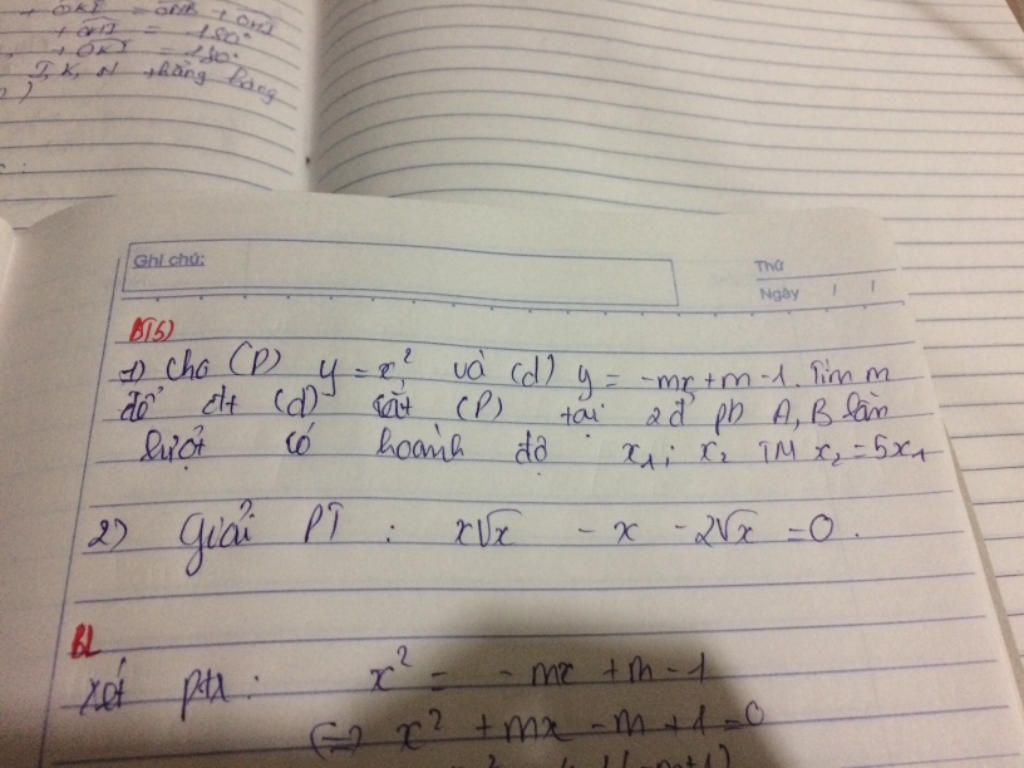 + OKI = ONB + OHI
+ OHI = 180°
+ OKI = 180°
I, K, N thẳng hàng
Ghi chú:
Thứ
Ngày / /
BT5)
1) cho (P) y = x² và (d) y = -mx + m - 1. Tìm m
để đt (d) cắt (P) tại 2đ pb A, B lần
lượt có hoành độ x₁; x₂ TM x₂ = 5x₁
2) Giải PT : x√x - x - 2√x = 0.
BL
xét ptx : x² = -mx + m - 1
(=) x² + mx - m + 1 = 0